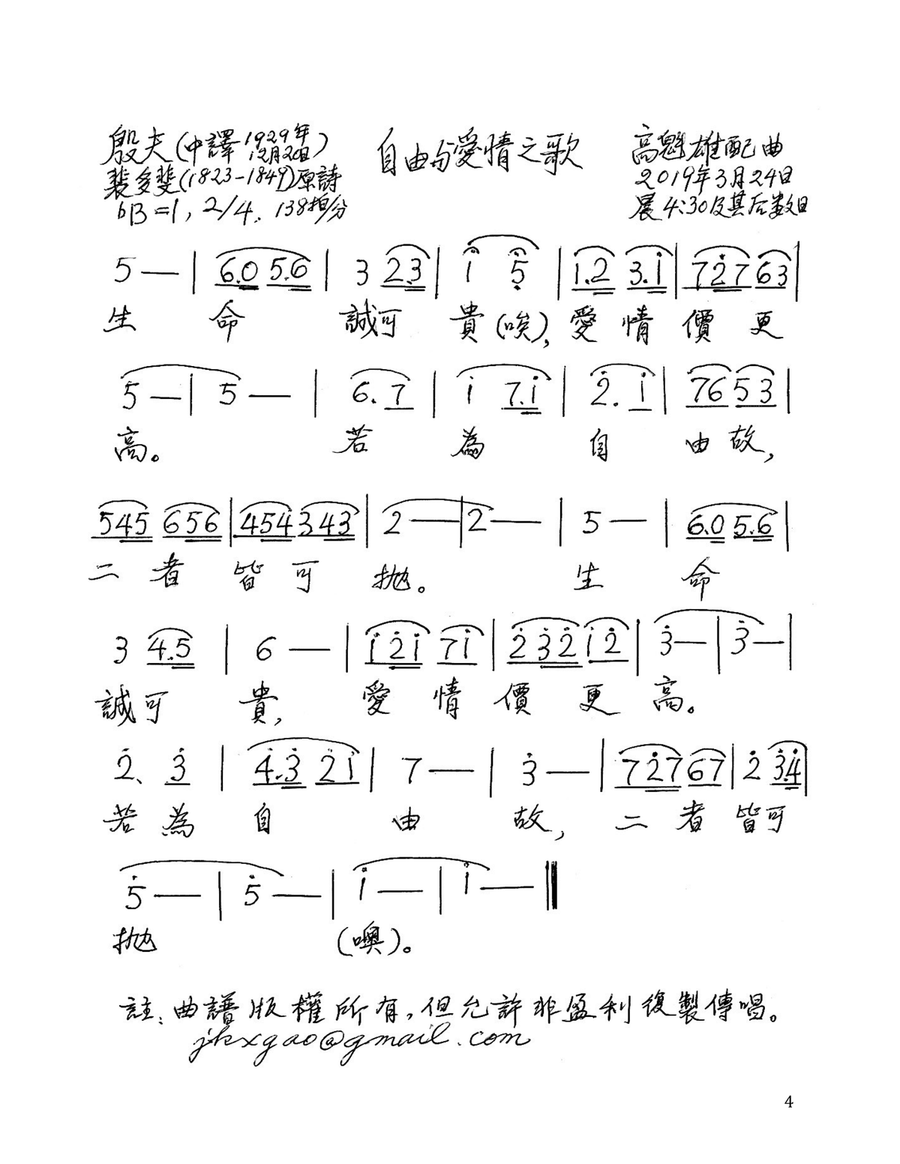 殷夫(中譯1929年12月20日) 自由与愛情之歌 高魁雄配曲
裴多斐(1823-1849)原詩 2019年3月24日
bB=1, 2/4, 138拍/分 晨4:30及其后数日
5 — | 6.0 5.6 | 3 2.3 | i 5 | i.2 3.i | 727 63 |
生 命 誠可 貴(唉), 愛 情 價 更
5 — | 5 — | 6.7 | i 7.i | 2.i | 76 53 |
高。 若 為 自 由故,
545 656 | 454 343 | 2 — | 2 — | 5 — | 6.0 5.6 |
二 者 皆 可 抛。 生 命
3 4.5 | 6 — | i2i 7i | 232 i2 | 3 — | 3 — |
誠可 貴, 愛 情 價 更 高。
2. 3 | 4.3 2i | 7 — | 3 — | 727 67 | 2 34 |
若 為 自 由 故, 二 者 皆可
5 — | 5 — | i — | i — ||
抛 (噢)。
註:曲譜版權所有,但允許非盈利復製傳唱。
jhxgao@gmail.com
4